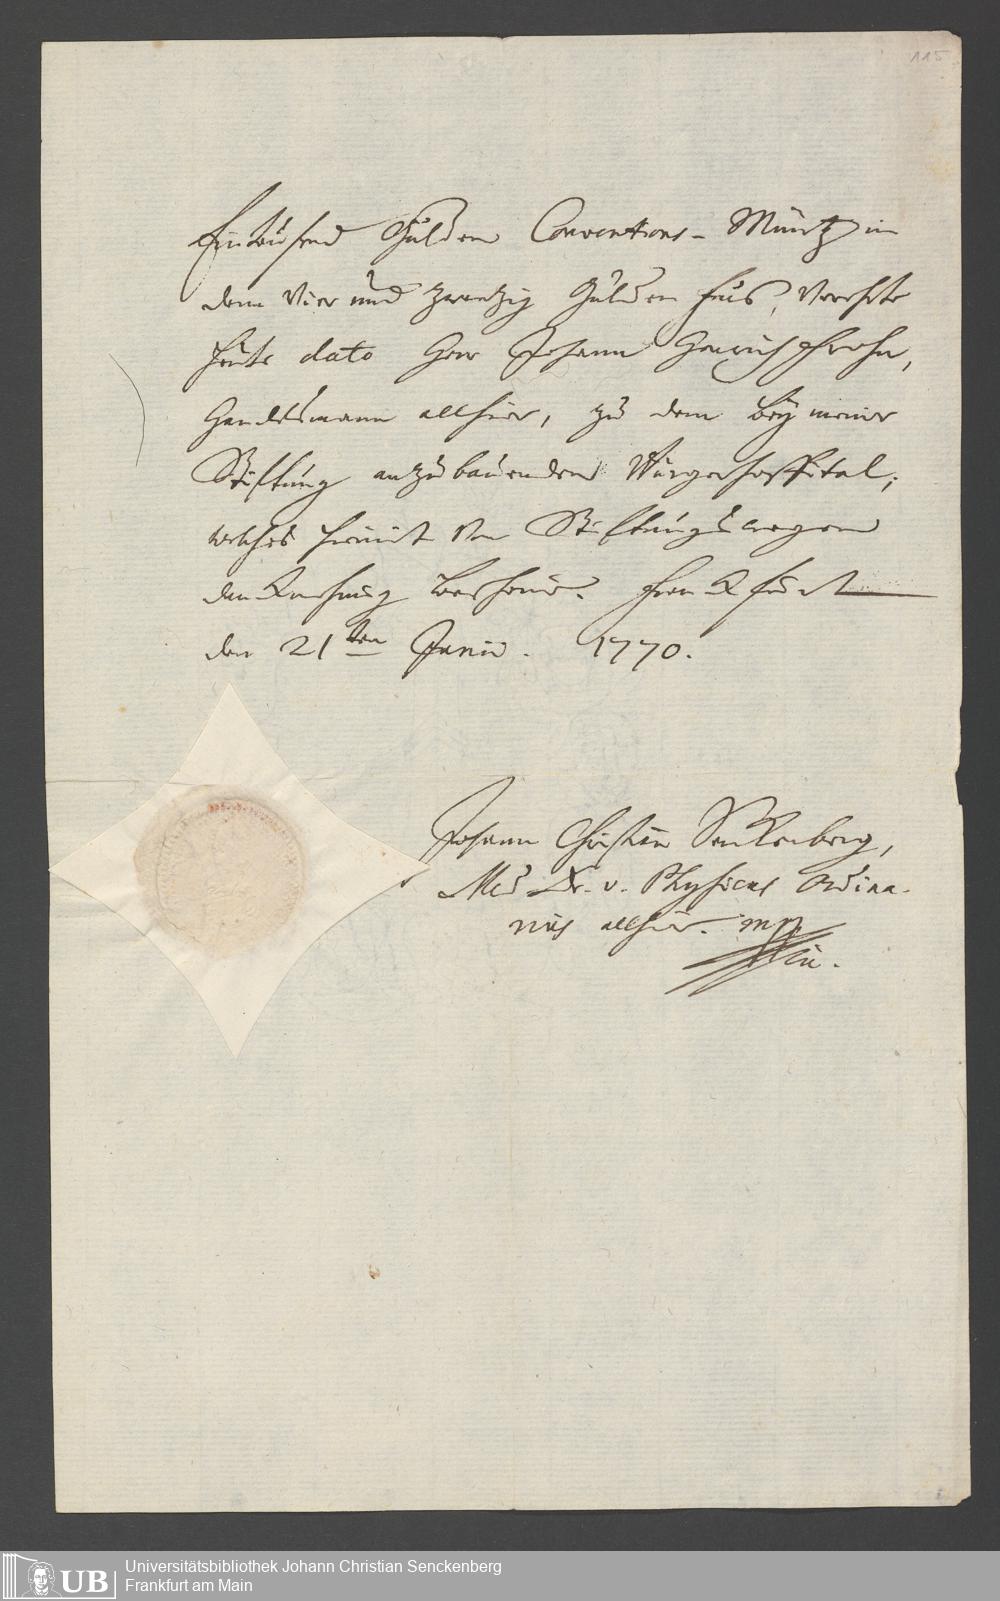 115
Eintausend Gulden Conventions-Müntz in
dem Vier und zwantzig Gulden fus, verehrte
heute dato Herr Johann Henrich
Handelsmann allhier, zu dem bey meiner
Stifftung anzubauenden Bürgerhospital,
welches hiemit von Stifftungswegen
bescheine. Franckfurt
den 21ten Junii. 1770.
Johann Christian Senckenberg,
Med Dr. u. Physicus Ordina-
rius allhier. mpp
Universitätsbibliothek Johann Christian Senckenberg
Frankfurt am Main
UB